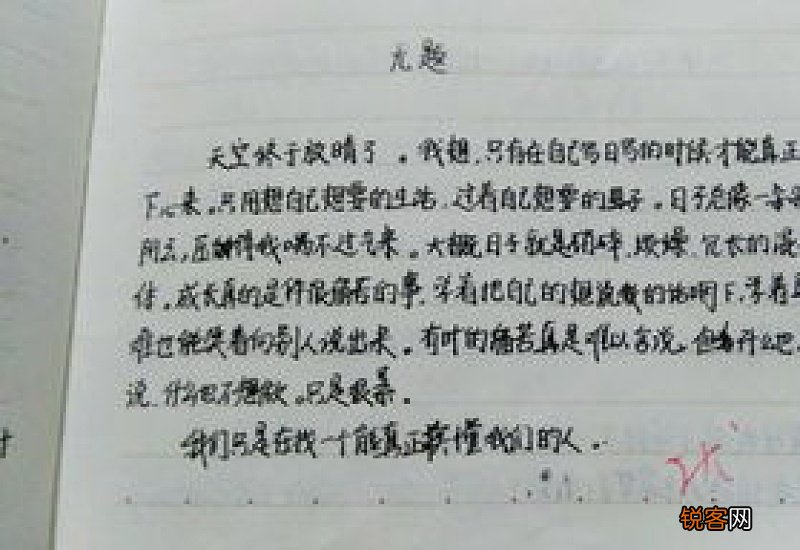 无题
天空终于放晴了。我想,只有在自己写日写的时候才能真正
下心来,只用想自己想要的生活,过着自己想要的日子。日子总像一
所云,压制得我喘不过气来。大概日子就是琐碎、烦燥、冗长的漫
成长真的是件很痛苦的事,学着把自己的想说我的话咽下,学着
难也能笑着向别人说出来。有时的痛苦真是难以言说。
说,什么也不想做。只是
我们只是在找一个能真正读懂我们的人。
锐客网